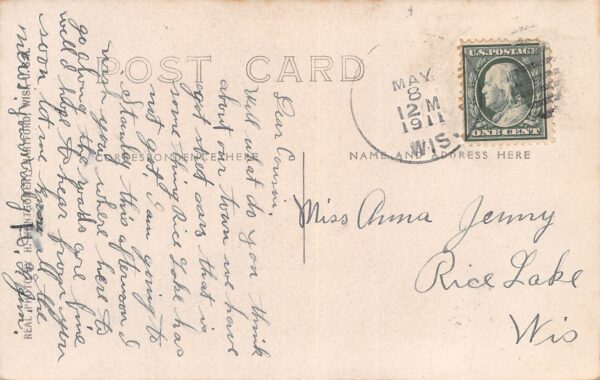 POST CARD
CORRESPONDENCE HERE
NAME AND ADDRESS HERE
MAY
8
12 M
1911
WIS.
U.S. POSTAGE
ONE CENT
Miss Anna Jenny
Rice Lake
Wis
Dear Cousin.
Well what do you think
about our town we have
got street cars that is
some thing Rice Lake has
not got. I am going to
Stanley this afternoon I
wish you where here to
go along the roads are fine
well I hope to hear from you
soon let me know all the
news
REAL PHOTO BY WIS.